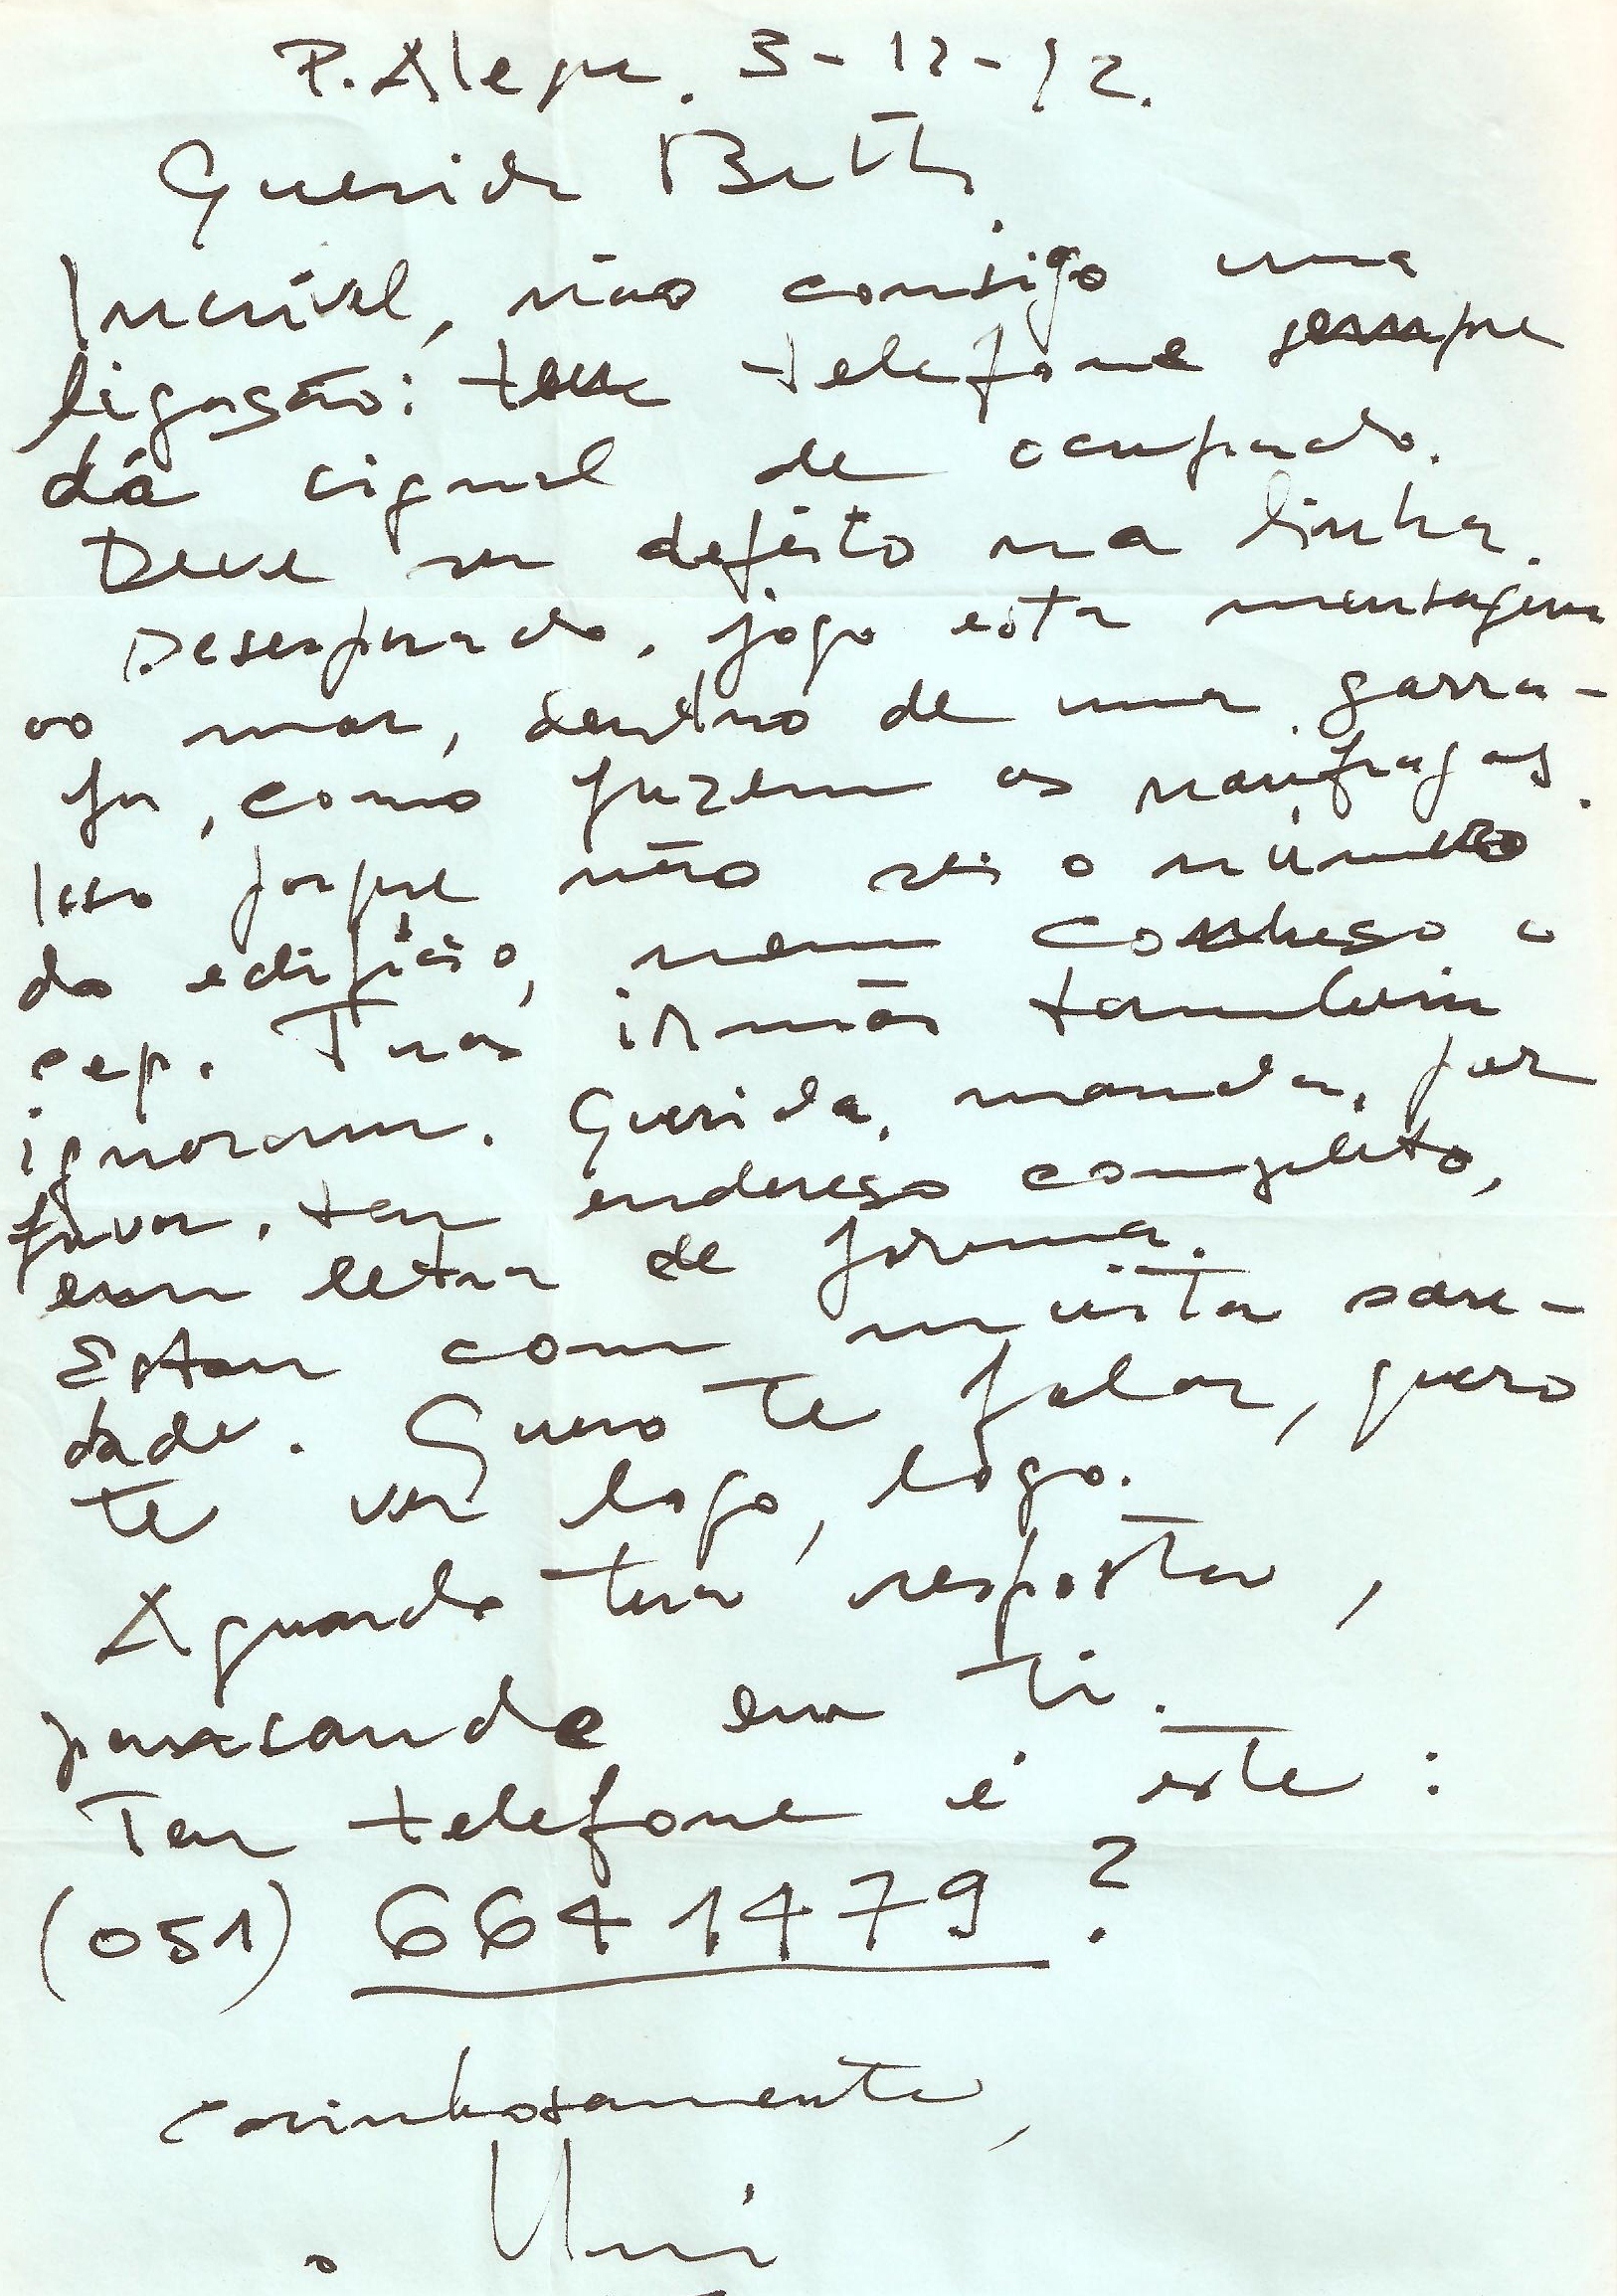 P. Alegre. 3-12-92.
Querida Beth,
Incrível, não consigo uma
ligação: teu telefone sempre
dá signal de ocupado.
Deve ser defeito na linha.
Desesperado, jogo esta mensagem
ao mar, dentro de uma garra-
fa, como fazem os náufragos.
Isso porque não sei o número
do edifício, nem conheço o
cep. Tuas irmãs também
ignoram. Querida, manda, por
favor, teu endereço completo,
em letra de forma.
Estou com muita sau-
dade. Quero te falar, quero
te ver logo, logo.
Aguardo tua resposta,
pensando em ti.
Teu telefone é este:
(051) 6641479?
carinhosamente,
o